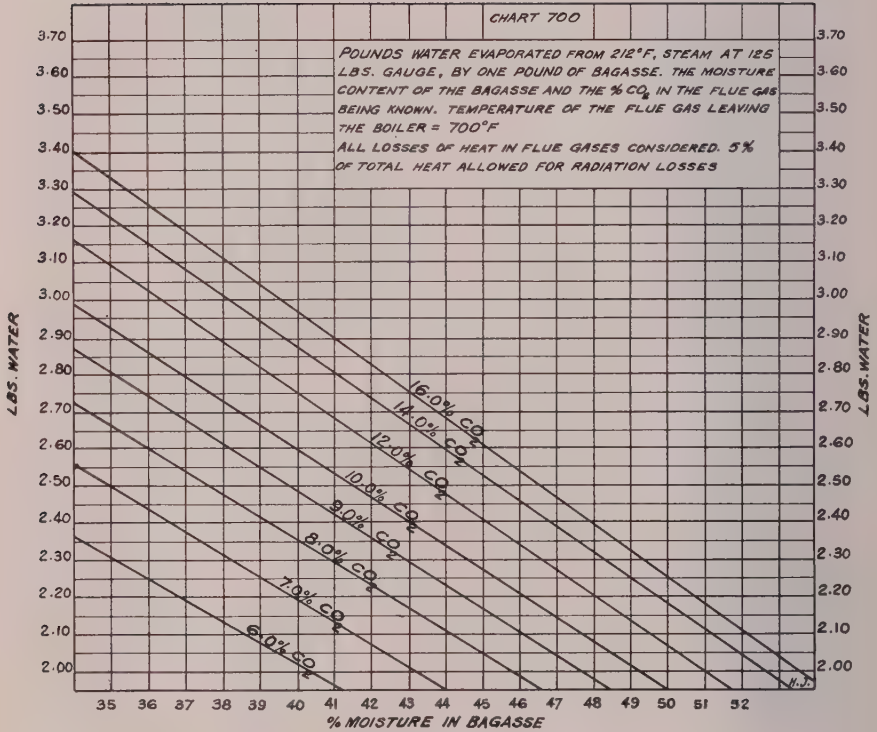 CHART 700
POUNDS WATER EVAPORATED FROM 212°F, STEAM AT 125
LBS. GAUGE, BY ONE POUND OF BAGASSE. THE MOISTURE
CONTENT OF THE BAGASSE AND THE % CO2 IN THE FLUE GAS
BEING KNOWN. TEMPERATURE OF THE FLUE GAS LEAVING
THE BOILER = 700°F
ALL LOSSES OF HEAT IN FLUE GASES CONSIDERED. 5%
OF TOTAL HEAT ALLOWED FOR RADIATION LOSSES
LBS. WATER
3.70
3.60
3.50
3.40
3.30
3.20
3.10
3.00
2.90
2.80
2.70
2.60
2.50
2.40
2.30
2.20
2.10
2.00
16.0% CO2
14.0% CO2
12.0% CO2
10.0% CO2
9.0% CO2
8.0% CO2
7.0% CO2
6.0% CO2
3.70
3.60
3.50
3.40
3.30
3.20
3.10
3.00
2.90
2.80
2.70
2.60
2.50
2.40
2.30
2.20
2.10
2.00
LBS. WATER
H.J.
35 36 37 38 39 40 41 42 43 44 45 46 47 48 49 50 51 52
% MOISTURE IN BAGASSE